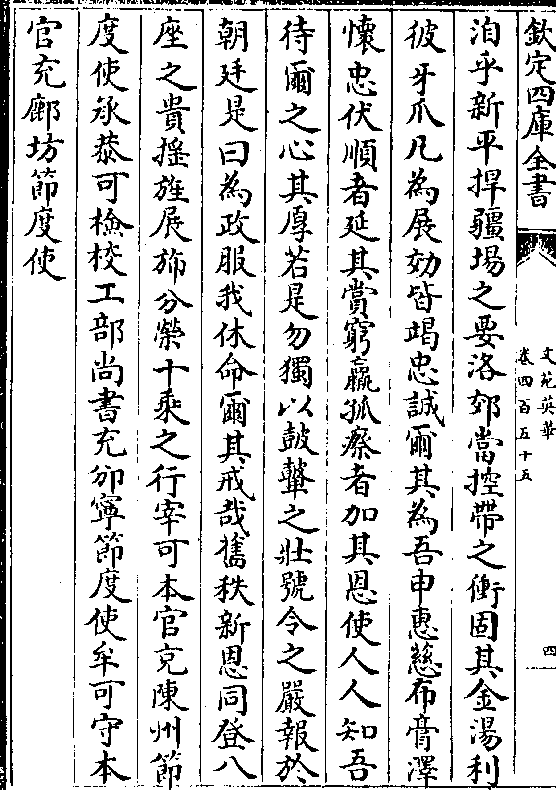 欽定四庫全書
文苑英華
卷四百五十五
四
洎乎新平捍疆場之要洛郊當控帶之衝固其金湯利
彼牙爪凡為展効皆竭忠誠爾其為吾申惠慈布膏澤
懷忠伏順者延其賞窮羸孤瘵者加其恩使人人知吾
待爾之心其厚若是勿獨以鼓鼙之壯號令之嚴報於
朝廷是曰為政服我休命爾其戒哉舊秩新恩同登八
座之貴揺旌展斾分榮十乘之行宰可本官充陳州節
度使承恭可檢校工部尚書充邠寧節度使牟可守本
官充鄜坊節度使